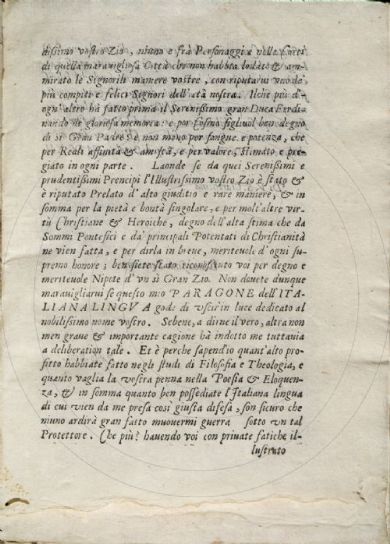 dißimo vostro Zio, niuno è frà Personaggi, e nelle Corti
di quella maravigliosa Città che non habbia lodate & am-
mirato le Signorili maniere vostre, con riputarui vno de
più compiti e felici Signori dell'età nostra. Il che più d'o-
gn'altro hà fatto prima il Sereniſsimo gran Duca Ferdi-
nando di gloriosa memoria: e por Cosmo figliuol ben degno
di sì Gran Padre; e non meno per sangue, e potenza, che
per Reale affinità & amistà, e per valore, stimato e pre-
giato in ogni parte. Laonde se da quei Sereniſsimi e
prudentiſsimi Prencipi l'Illustriſsimo vostro Zio è stato &
è riputato Prelato d'alto giuditio e rare maniere, & in
somma per la pietà e bontà singolare, e per molt'altre vir-
tù Christiane & Heroiche, degno dell'alta stima che da
Sommi Pontefici e da' principali Potentati di Christianità
ne vien fatta, e per dirla in breue, meriteuole d'ogni su-
premo honore; ben siete stato riconosciuto voi per degno e
meriteuole Nipote d'vn sì Gran Zio. Non douete dunque
marauigliarui se questo mio PARAGONE dell'ITA-
LIANA LINGVA gode di vscir in luce dedicato al
nobiliſsimo nome vostro. Sebene, a dirne il vero, altra non
men graue & importante cagione hà indotto me tuttauia
a deliberation tale. Et è perche sapendio quant'alto pro-
fitto habbiate fatto negli studi di Filosofia e Theologia, e
quanto vaglia la vostra penna nella Poesia & Eloquen-
za, & in somma quanto ben poſsediate l'Italiana lingua
di cui vien da me presa così giusta difesa, son sicuro che
niuno ardirà gran fatto muouermi guerra sotto vn tal
Protettore. Che più? hauendo voi con priuate fatiche il-
lustrato